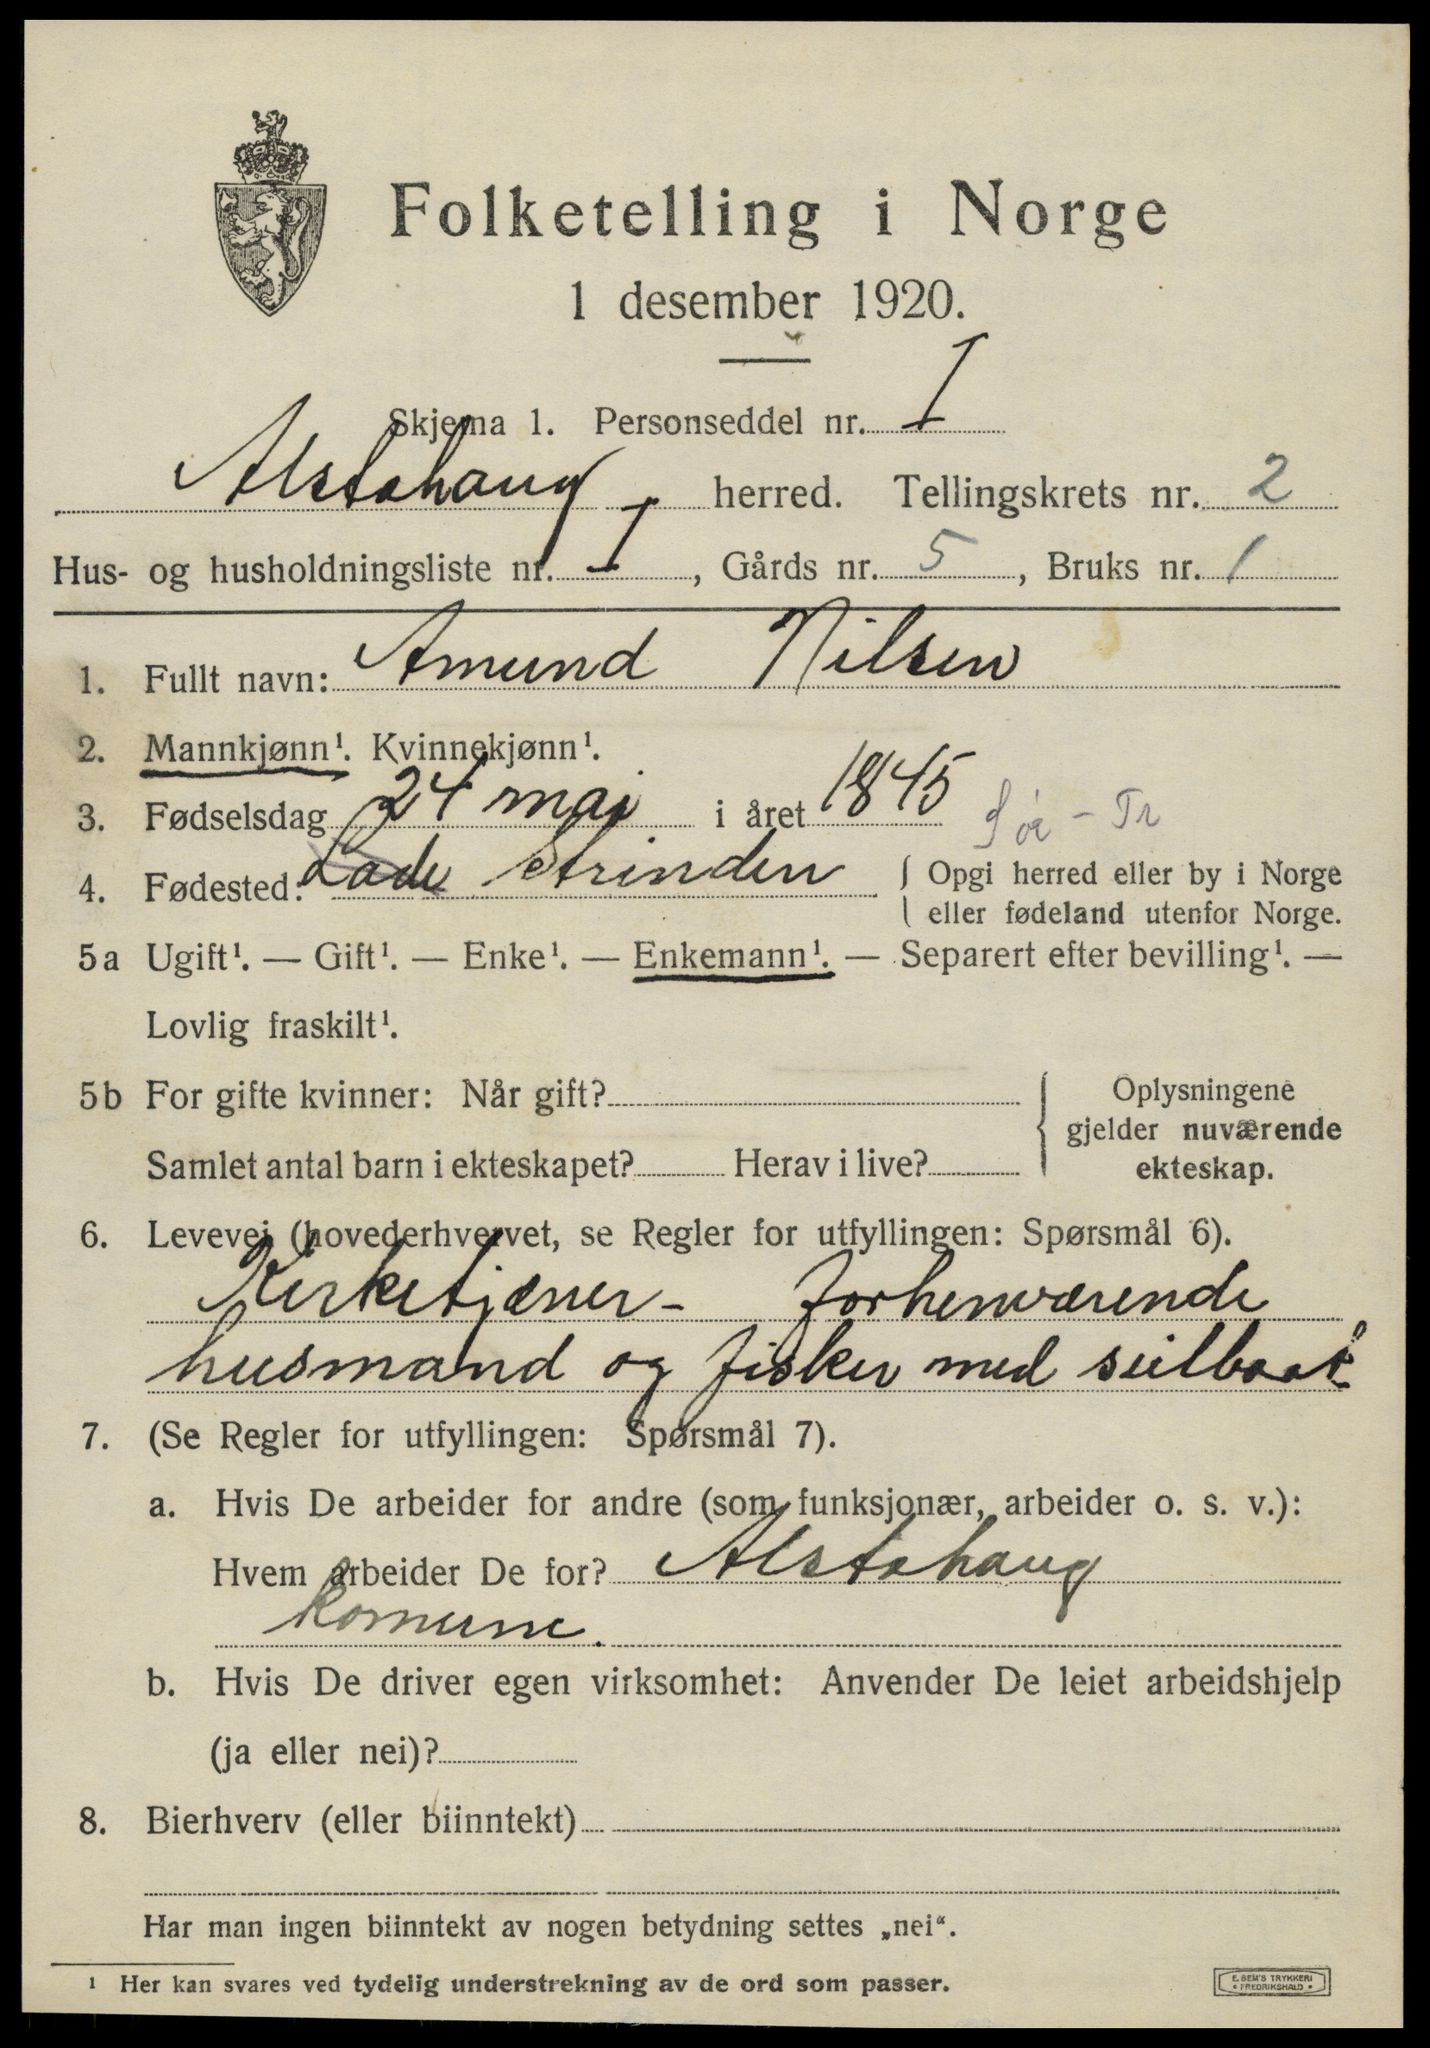 Folketelling i Norge
1 desember 1920.
Skjema 1. Personseddel nr. I
Alstahaug herred. Tellingskrets nr. 2
Hus- og husholdningsliste nr. I, Gårds nr. 5, Bruks nr. 1
1. Fullt navn: Amund Nilsen
2. Mannkjønn¹. Kvinnekjønn¹.
3. Fødselsdag 24 mai i året 1845 Sør-Tr
4. Fødested: Lade Strinden { Opgi herred eller by i Norge
eller fødeland utenfor Norge.
5a Ugift¹. — Gift¹. — Enke¹. — Enkemann¹. — Separert efter bevilling¹. —
Lovlig fraskilt¹.
5b For gifte kvinner: Når gift? { Oplysningene
gjelder nuværende
Samlet antal barn i ekteskapet? Herav i live? ekteskap.
6. Levevei (hovederhvervet, se Regler for utfyllingen: Spørsmål 6).
Kirketjæner - forhenværende
husmand og fisker med seilbaat
7. (Se Regler for utfyllingen: Spørsmål 7).
a. Hvis De arbeider for andre (som funksjonær, arbeider o. s. v.):
Hvem arbeider De for? Alstahaug
komune.
b. Hvis De driver egen virksomhet: Anvender De leiet arbeidshjelp
(ja eller nei)?
8. Bierhverv (eller biinntekt)
Har man ingen biinntekt av nogen betydning settes „nei“.
¹ Her kan svares ved tydelig understrekning av de ord som passer.
E. SEM'S TRYKKERI
• FREDRIKSHALD •